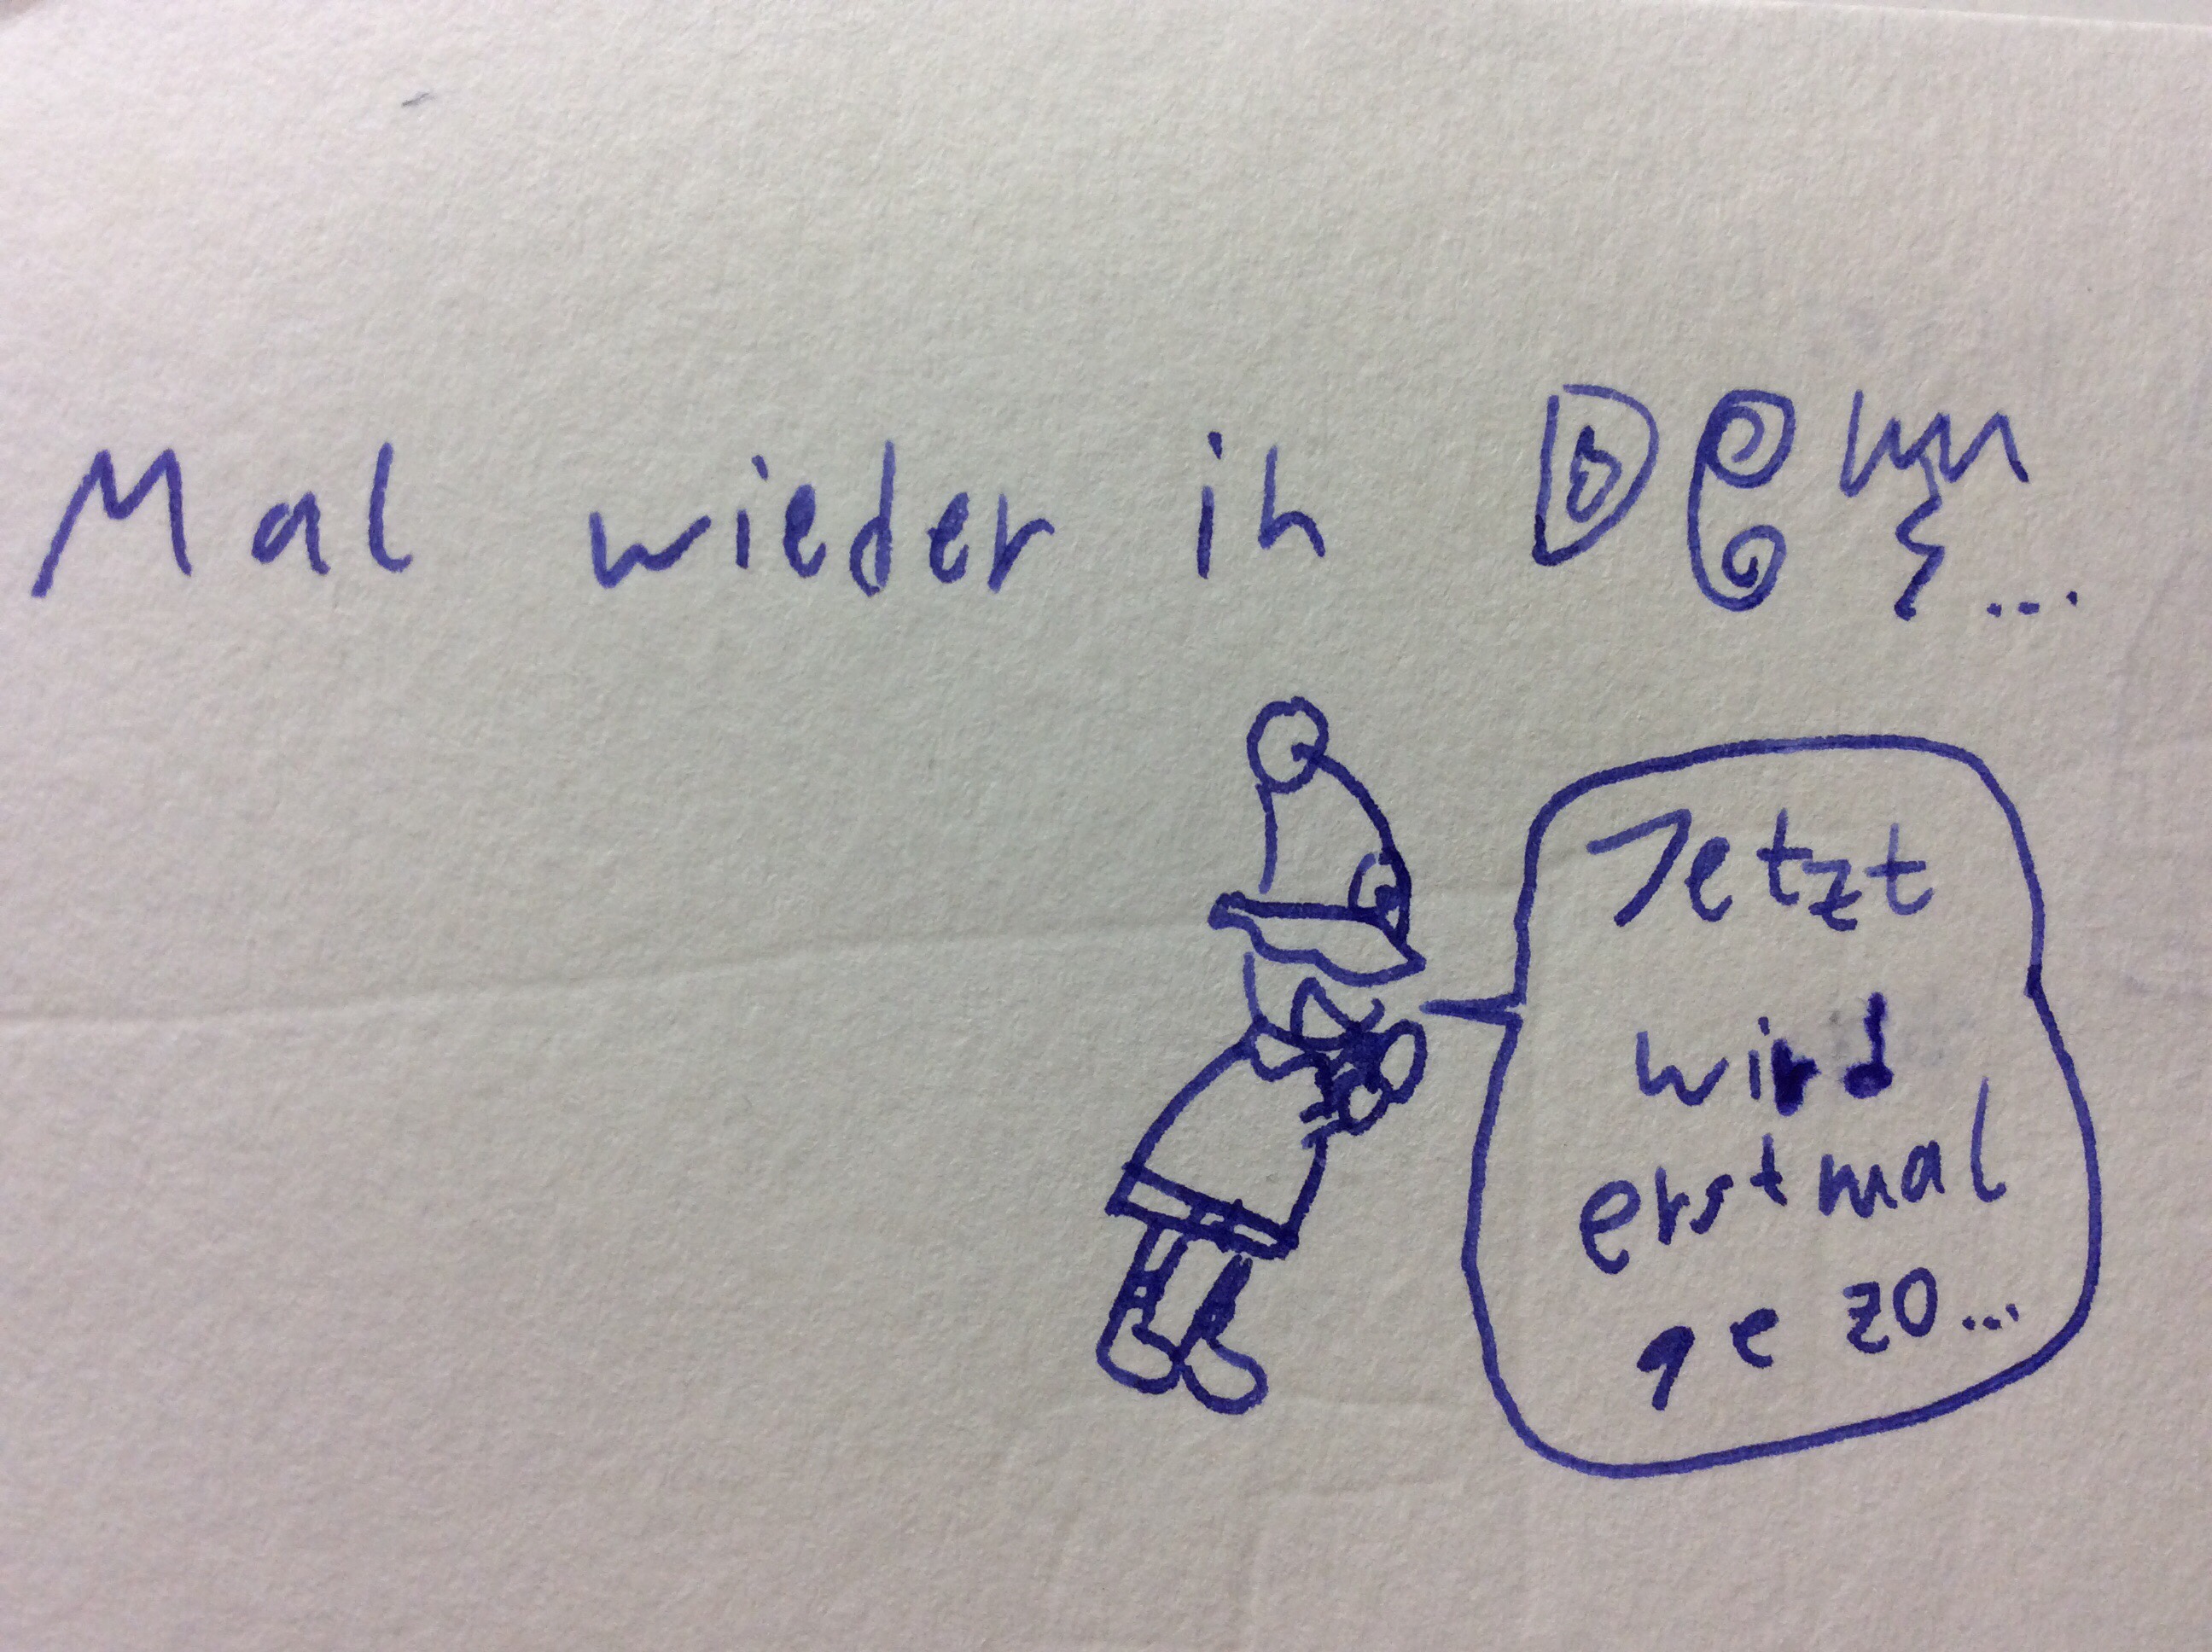 Mal wieder in
Jetzt
wird
erstmal
ge zo...